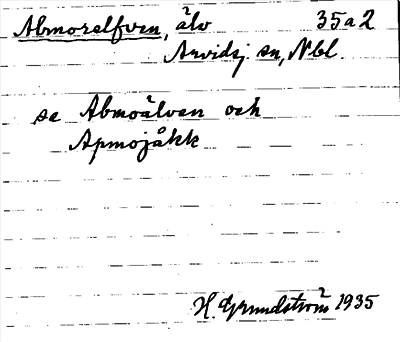 Abmorelfven, älv 35a2
Arvidsj. sn, Nbl.
se Abmoälven och
Apmojåkk
H. Grundström 1935